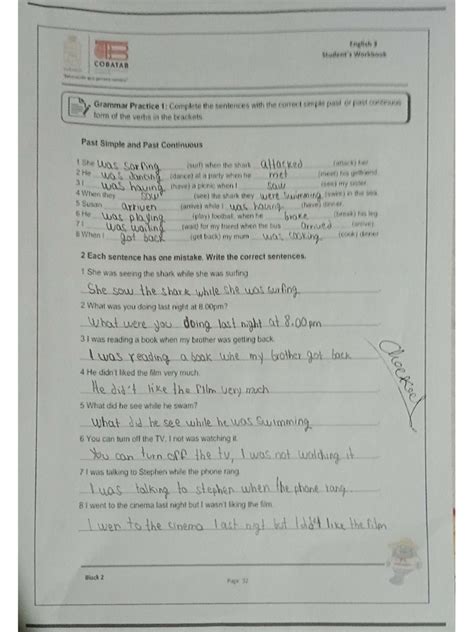 English 3
Student's Workbook
COBATAB
Grammar Practice 1: Complete the sentences with the correct simple past or past continuous
form of the verbs in the brackets.
Past Simple and Past Continuous
1 She was sorfing (surf) when the shark attacked (attack) her.
2 He was dancing (dance) at a party when he met (meet) his girlfriend.
3 I was having (have) a picnic when I saw (see) my sister.
4 When they saw (see) the shark they were swimming (swim) in the sea.
5 Susan arriven (arrive) while I was having (have) dinner.
6 He was playing (play) football, when he brake (break) his leg
7 I was waiting (wait) for my friend when the bus arrived (arrive)
8 When I got back (get back) my mum was cooking (cook) dinner
2 Each sentence has one mistake. Write the correct sentences.
1 She was seeing the shark while she was surfing
She saw the shark while she was surfing
2 What was you doing last night at 8.00pm?
What were you doing last night at 8.00pm
3 I was reading a book when my brother was getting back.
I was reading a book whe my brother got back
Checked
4 He didn't liked the film very much.
He did't like the film very much
5 What did he see while he swam?
What did he see while he was swimming
6 You can turn off the TV. I not was watching it.
You can turn off the tv, I was not watching it
7 I was talking to Stephen while the phone rang.
I was talking to stephen when the phone rang
8 I went to the cinema last night but I wasn't liking the film.
I wen to the cinema last nigt but I did't like the film
Block 2
Page 32